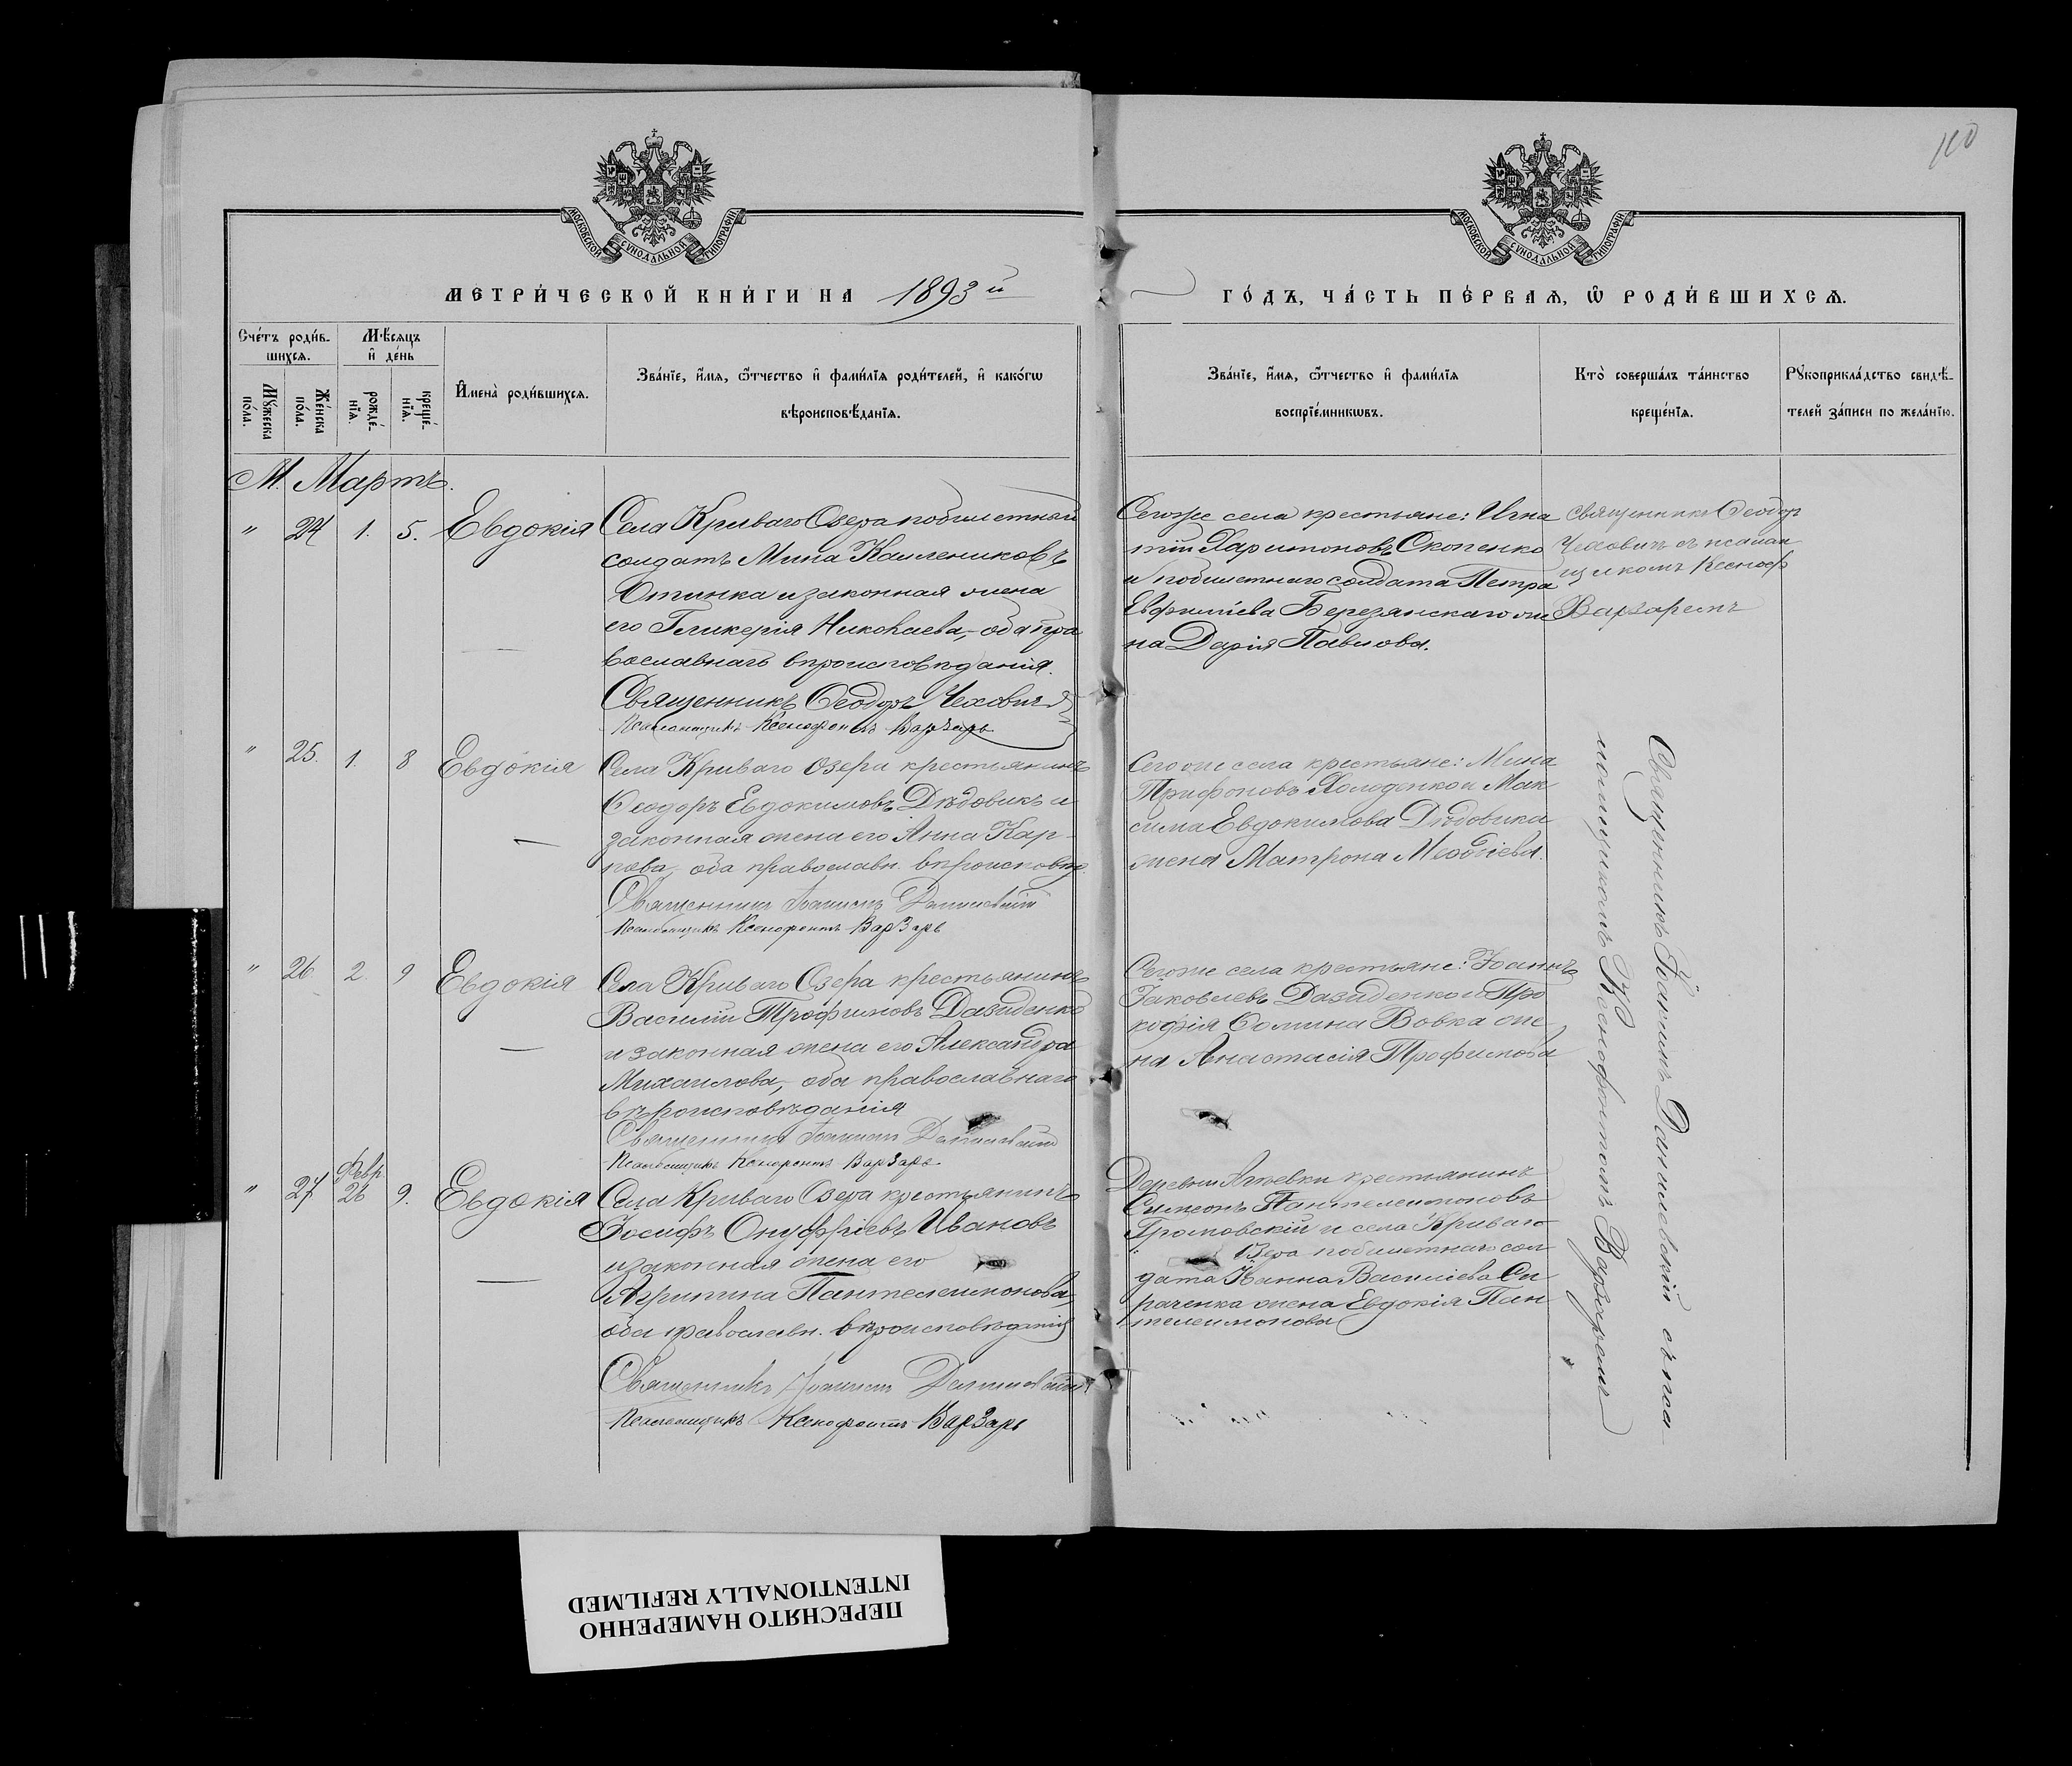 110
МОСКОВСКОЙ СУНОДАЛЬНОЙ ТИПОГРАФІИ
МОСКОВСКОЙ СУНОДАЛЬНОЙ ТИПОГРАФІИ
МЕТРИ́ЧЕСКОЙ КНИ́ГИ НА 1893 й
ГО́ДЪ, ЧА́СТЬ ПЕ́РВАѦ, Ѽ РОДИ́ВШИХСѦ.
Счéтъ роди́в-
шихсѧ.
Мѣ́сѧцъ
и҆ де́нь
Мꙋ́жеска
по́ла.
Же́нска
по́ла.
рожде́-
нїѧ.
креще́-
нїѧ.
И҆мена̀ роди́вшихсѧ.
Зва́нїе, и҆́мѧ, ѻ҆́тчество и҆ фами́лїѧ роди́телей, и҆ како́гѡ
вѣроисповѣ́данїѧ.
Зва́нїе, и҆́мѧ, ѻ҆́тчество и҆ фами́лїѧ
воспрїе́мникѡвъ.
Кто̀ соверша́лъ та́инство
креще́нїѧ.
Рꙋкоприкла́дство свидѣ́-
телей за́писи по жела́нїю.
М. Мартъ.
" 24 1. 5. Евдокія
Села Криваго Озера побилетный
солдатъ Мина Каллениковъ
и законная жена
его Гликерія Николаева, оба пра
вославнаго вѣроисповѣданія.
Священникъ Ѳеодоръ Чеховичъ
Псаломщикъ Ксенофонтъ Варзарь
Сегоже села крестьяне: Игна
тій Харитоновъ Скопенко
и побилетнаго солдата Петра
Евфиміева Березянскаго же
на Дарія Павлова.
Священникъ Ѳеодор
Чеховичъ съ псалом
щикомъ Ксеноф
Варзаремъ
" 25. 1. 8 Евдокія
Села Криваго Озера крестьянинъ
Ѳеодоръ Евдокимовъ Дѣдовикъ и
законная жена его Анна Кар-
пова, оба православн. вѣроисповѣд.
Священникъ Іоакимъ Даниловскій
Псаломщикъ Ксенофонтъ Варзарь
Сегоже села крестьяне: Мина
Трифоновъ Холоденко и Мак
сима Евдокимова Дѣдовика
жена Матрона Меѳодіева.
Священникъ Іоакимъ Даниловскій съ пса-
ломщикомъ Ксенофонтомъ Варзаремъ
" 26 2. 9 Евдокія
Села Криваго Озера крестьянинъ
Василій Трофимовъ Давиденко
и законная жена его Александра
Михаилова, оба православнаго
вѣроисповѣданія
Священникъ Іоакимъ Даниловскій
Псаломщикъ Ксенофонтъ Варзарь
Сегоже села крестьяне: Іоаннъ
Іаковлевъ Давиденко и Про
кофія Ѳомина Вовка же
на Анастасія Трофимова
" 27 Февр. 26 9. Евдокія
Села Криваго Озера крестьянинъ
Іосифъ Онуфріевъ Ивановъ
и законная жена его
Агрипина Пантелеимонова,
оба православн. вѣроисповѣданія
Священникъ Іоакимъ Даниловскій
Псаломщикъ Ксенофонтъ Варзарь
Деревни крестьянинъ
Симеонъ Пантелеимоновъ
Громовскій и села Криваго
Озера побилетнаго сол
дата Василіева Си
раченка жена Евдокія Пан
телеимонова
ПЕРЕСНЯТО НАМЕРЕННО
INTENTIONALLY REFILMED